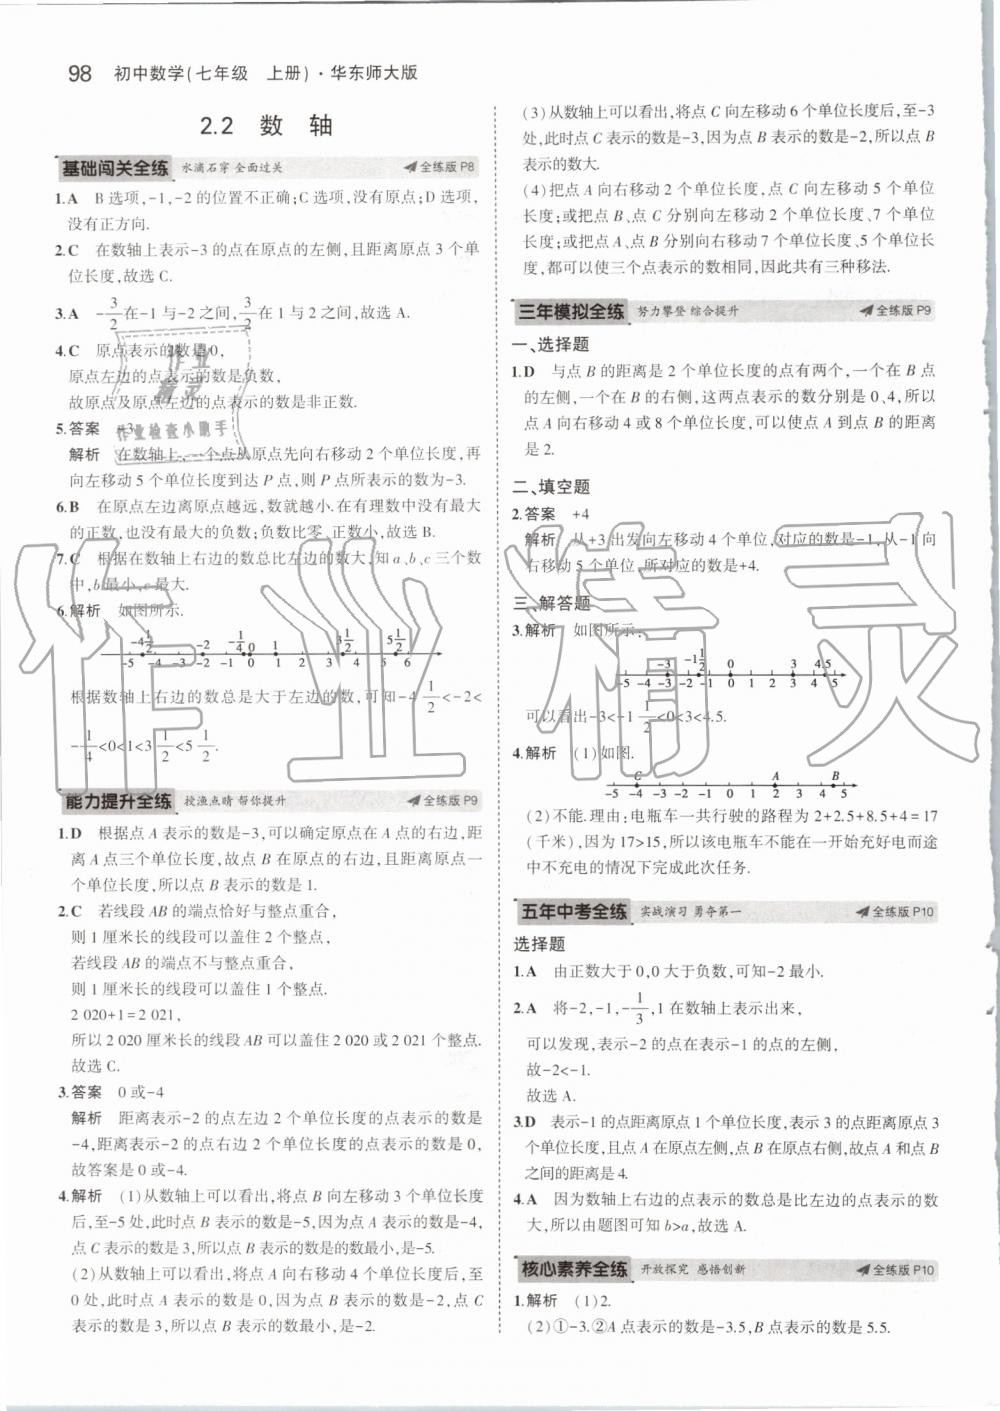 98 初中数学(七年级 上册)·华东师大版
2.2 数 轴
基础闯关全练 水滴石穿 全面过关 全练版 P8
1.A B 选项,-1,-2 的位置不正确;C 选项,没有原点;D 选项,
没有正方向.
2.C 在数轴上表示-3 的点在原点的左侧,且距离原点 3 个单
位长度,故选 C.
3.A -3/2在-1 与-2 之间,3/2在 1 与 2 之间,故选 A.
4.C 原点表示的数是 0,
原点左边的点表示的数是负数,
故原点及原点左边的点表示的数是非正数.
5.答案 -3
解析 在数轴上,一个点从原点先向右移动 2 个单位长度,再
向左移动 5 个单位长度到达 P 点,则 P 点所表示的数为-3.
6.B 在原点左边离原点越远,数就越小.在有理数中没有最大
的正数,也没有最大的负数;负数比零、正数小,故选 B.
7.C 根据在数轴上右边的数总比左边的数大,知 a、b、c 三个数
中,b 最小,c 最大.
6.解析 如图所示.
-4 1/2 -2 -1/4 0 1 3 1/2 5 1/2
-5 -4 -3 -2 -1 0 1 2 3 4 5 6
根据数轴上右边的数总是大于左边的数,可知-4 1/2<-2<
-1/4<0<1<3 1/2<5 1/2.
能力提升全练 授渔点睛 帮你提升 全练版 P9
1.D 根据点 A 表示的数是-3,可以确定原点在 A 点的右边,距
离 A 点三个单位长度,故点 B 在原点的右边,且距离原点一
个单位长度,所以点 B 表示的数是 1.
2.C 若线段 AB 的端点恰好与整点重合,
则 1 厘米长的线段可以盖住 2 个整点,
若线段 AB 的端点不与整点重合,
则 1 厘米长的线段可以盖住 1 个整点.
2 020+1=2 021,
所以 2 020 厘米长的线段 AB 可以盖住 2 020 或 2 021 个整点.
故选 C.
3.答案 0 或-4
解析 距离表示-2 的点左边 2 个单位长度的点表示的数是
-4,距离表示-2 的点右边 2 个单位长度的点表示的数是 0,
故答案是 0 或-4.
4.解析 (1)从数轴上可以看出,将点 B 向左移动 3 个单位长度
后,至-5 处,此时点 B 表示的数是-5,因为点 A 表示的数是-4,
点 C 表示的数是 3,所以点 B 表示的数最小,是-5.
(2)从数轴上可以看出,将点 A 向右移动 4 个单位长度后,至
0 处,此时点 A 表示的数是 0,因为点 B 表示的数是-2,点 C
表示的数是 3,所以点 B 表示的数最小,是-2.
(3)从数轴上可以看出,将点 C 向左移动 6 个单位长度后,至-3
处,此时点 C 表示的数是-3,因为点 B 表示的数是-2,所以点 B
表示的数大.
(4)把点 A 向右移动 2 个单位长度,点 C 向左移动 5 个单位
长度;或把点 B、点 C 分别向左移动 2 个单位长度、7 个单位
长度;或把点 A、点 B 分别向右移动 7 个单位长度、5 个单位长
度,都可以使三个点表示的数相同,因此共有三种移法.
三年模拟全练 努力攀登 综合提升 全练版 P9
一、选择题
1.D 与点 B 的距离是 2 个单位长度的点有两个,一个在 B 点
的左侧,一个在 B 的右侧,这两点表示的数分别是 0、4,所以
点 A 向右移动 4 或 8 个单位长度,可以使点 A 到点 B 的距离
是 2.
二、填空题
2.答案 +4
解析 从+3 出发向左移动 4 个单位,对应的数是-1,从-1 向
右移动 5 个单位,所对应的数是+4.
三、解答题
3.解析 如图所示:
-3 -1 1/2 0 3 4.5
-5 -4 -3 -2 -1 0 1 2 3 4 5
可以看出-3<-1 1/2<0<3<4.5.
4.解析 (1)如图.
C A B
-5 -4 -3 -2 -1 0 1 2 3 4 5
(2)不能.理由:电瓶车一共行驶的路程为 2+2.5+8.5+4=17
(千米),因为 17>15,所以该电瓶车不能在一开始充好电而途
中不充电的情况下完成此次任务.
五年中考全练 实战演习 勇夺第一 全练版 P10
选择题
1.A 由正数大于 0,0 大于负数,可知-2 最小.
2.A 将-2,-1,-1/3,1 在数轴上表示出来,
可以发现,表示-2 的点在表示-1 的点的左侧,
故-2<-1.
故选 A.
3.D 表示-1 的点距离原点 1 个单位长度,表示 3 的点距离原点 3
个单位长度,且点 A 在原点左侧,点 B 在原点右侧,故点 A 和点 B
之间的距离是 4.
4.A 因为数轴上右边的点表示的数总是比左边的点表示的数
大,所以由题图可知 b>a,故选 A.
核心素养全练 开放探究 感悟创新 全练版 P10
1.解析 (1)2.
(2)①-3.②A 点表示的数是-3.5,B 点表示的数是 5.5.
作业精灵
作业
精灵
作业检查小助手